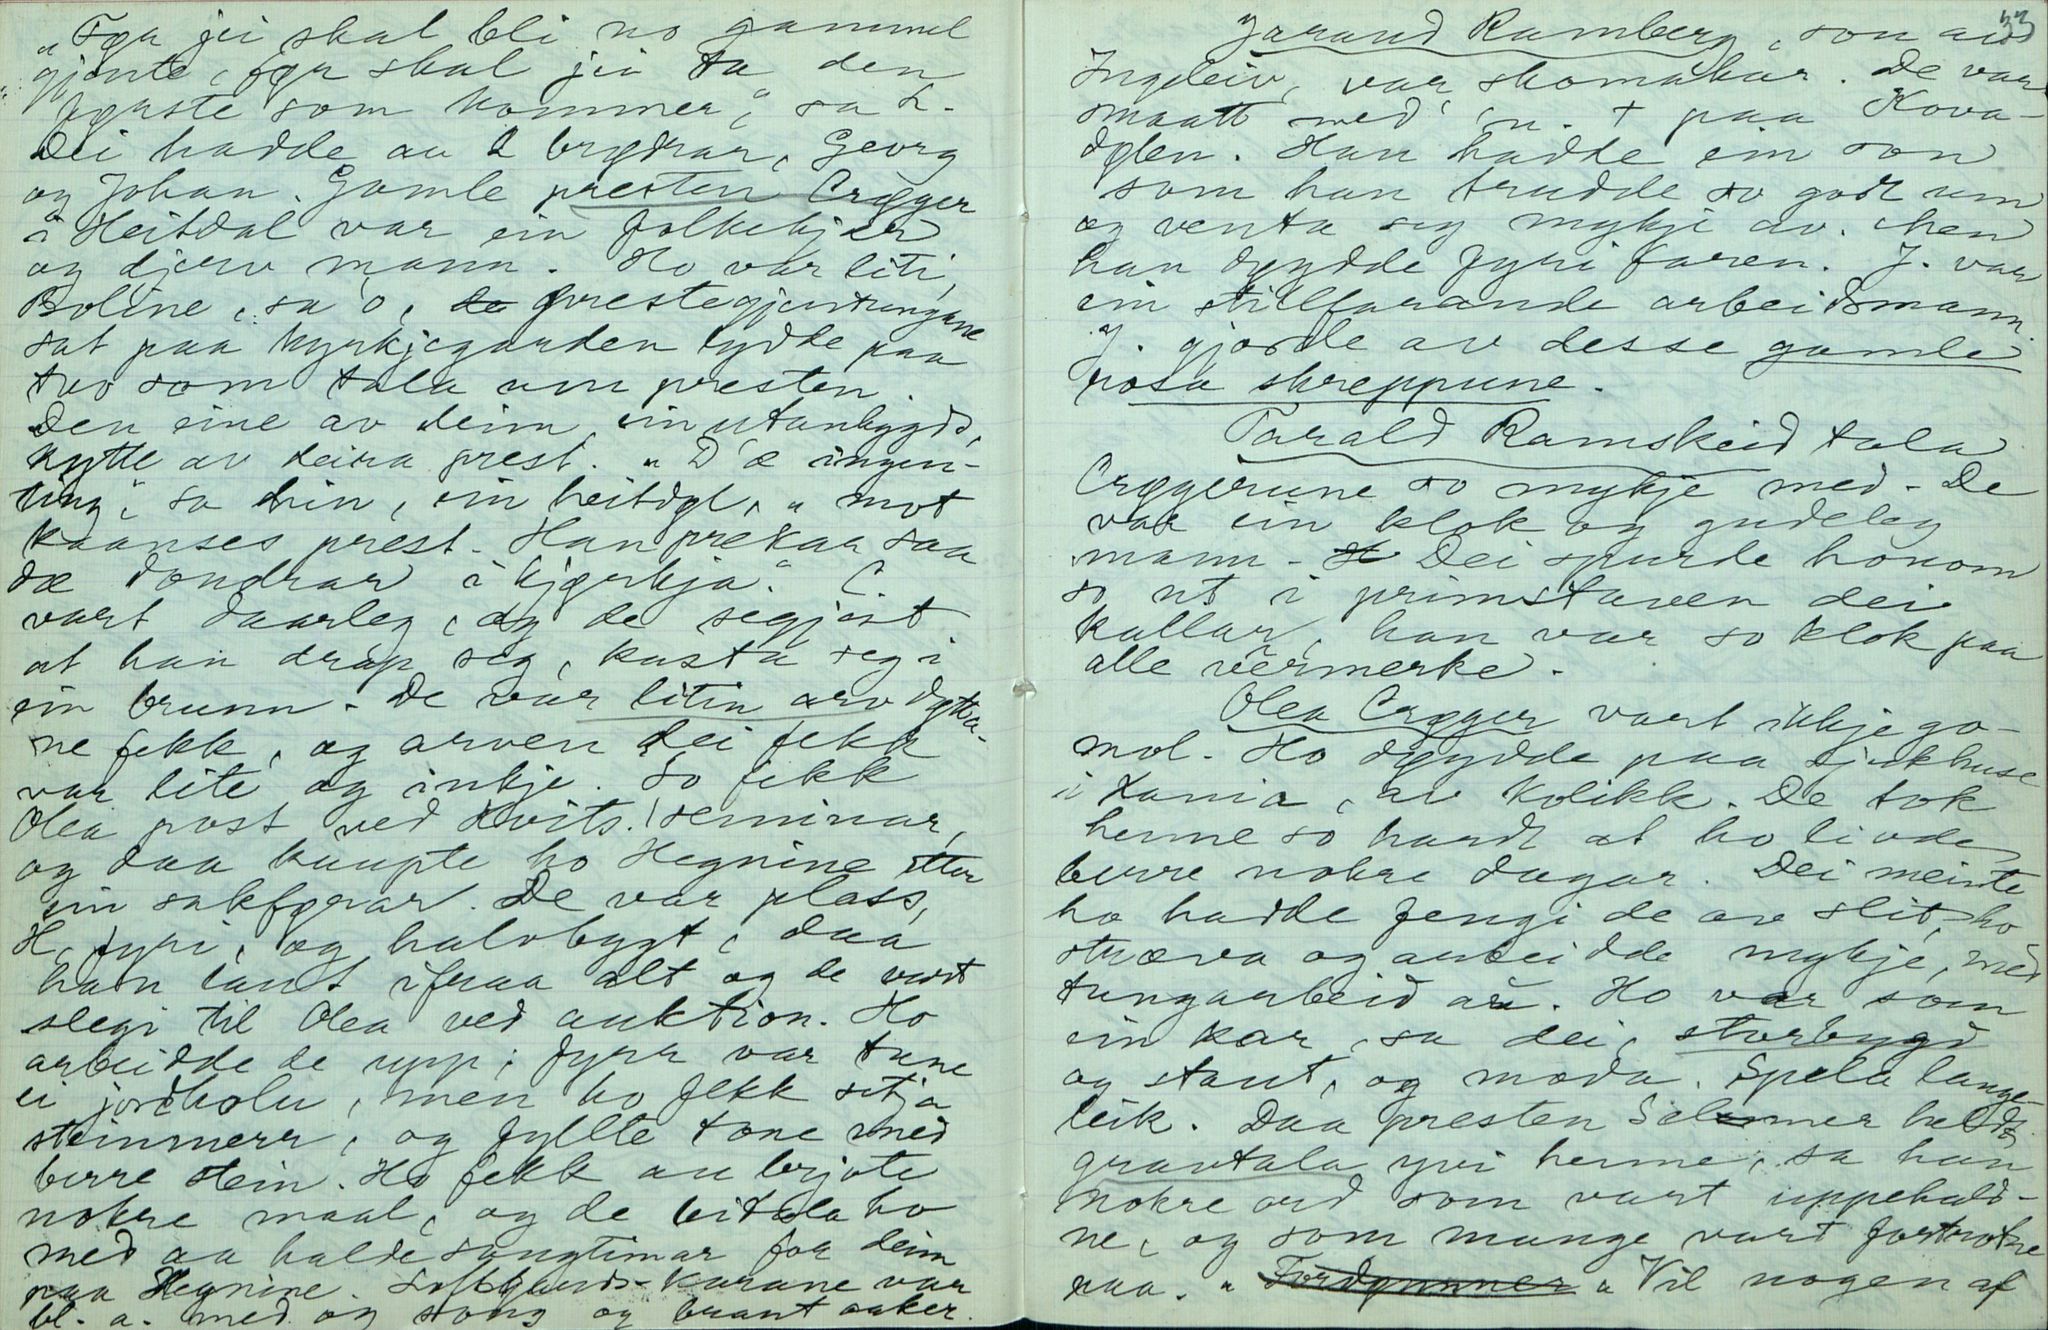 "Før jei skal bli no gammel
gjente, før skal jei ta den
første som kommer", sa L.
Dei hadde au 2 brødrar, Georg
og Johan. Gamle presten Crøger
i Heitdal var ein folkekjær
og djerv mann. Ho var liti,
Boline, sa o, prestegjentungane
sat paa kyrkjegarden lydde paa
tvo som tala um presten.
Den eine av deim, ein utanbygds,
skytte av deira prest. "D'æ ingen-
ting", sa hin, ein heitdøl, "mot
kaanses prest. Han prekar saa
dæ dondrar i kjørkja." C.
vart daarleg, og de segjest
at han drap seg, kasta seg i
ein brunn. De var litin arv døtta-
ne fekk, og arven dei fekk
var lite og inkje. So fekk
Olea post ved Kvits. seminar,
og daa kaupte ho Hegnine etter
ein sakførar. De var plass,
H. fyri, og halvbygt, daa
han rant ifraa alt og de vart
slegi til Olea ved auktion. Ho
arbeidde de upp; fyrr var tune
ei jordholu, men ho fekk setja
steinmerr, og fyllte tone med
berre stein. Ho fekk au brjote
nokre maal, og de bitala ho
med aa halde songtimar for deim
paa Hegnine. Loftgards-karane var
bl. a. med og song og braut aaker.
33
Jarand Ramberg, son aat
Ingeleiv, var skomakar. De var
smaatt med 'n. + paa Kova-
dølen. Han hadde ein son
som han trudde so godt um
og venta seg mykji av. Men
han døydde fyri faren. J. var
ein stillfarande arbeidsmann.
J. gjorde av desse gamle
rosa skreppune.
Tarald Ramskeid tala
Crøgerune so mykje med. De
var ein klok og gudeleg
mann. Dei spurde honom
so ut i primstaven dei
kallar, han var so klok paa
alle vermerke.
Olea Crøger vart ikkje go-
mol. Ho døydde paa sjukhuse
i Kania, av kolikk. De tok
henne so hardt at ho livde
berre nokre dagar. Dei meinte
ho hadde fengi de av slit, ho
stræva og arbeidde mykje, med
tungarbeid au. Ho var som
ein kar, sa dei, storbygd
og staut, og moda. Spela lange-
leik. Daa presten Selmer heldt
gravtala yvi henne, sa han
nokre ord som vart uppehald-
ne, og som mange vart fortrotne
paa. "Vil nogen af